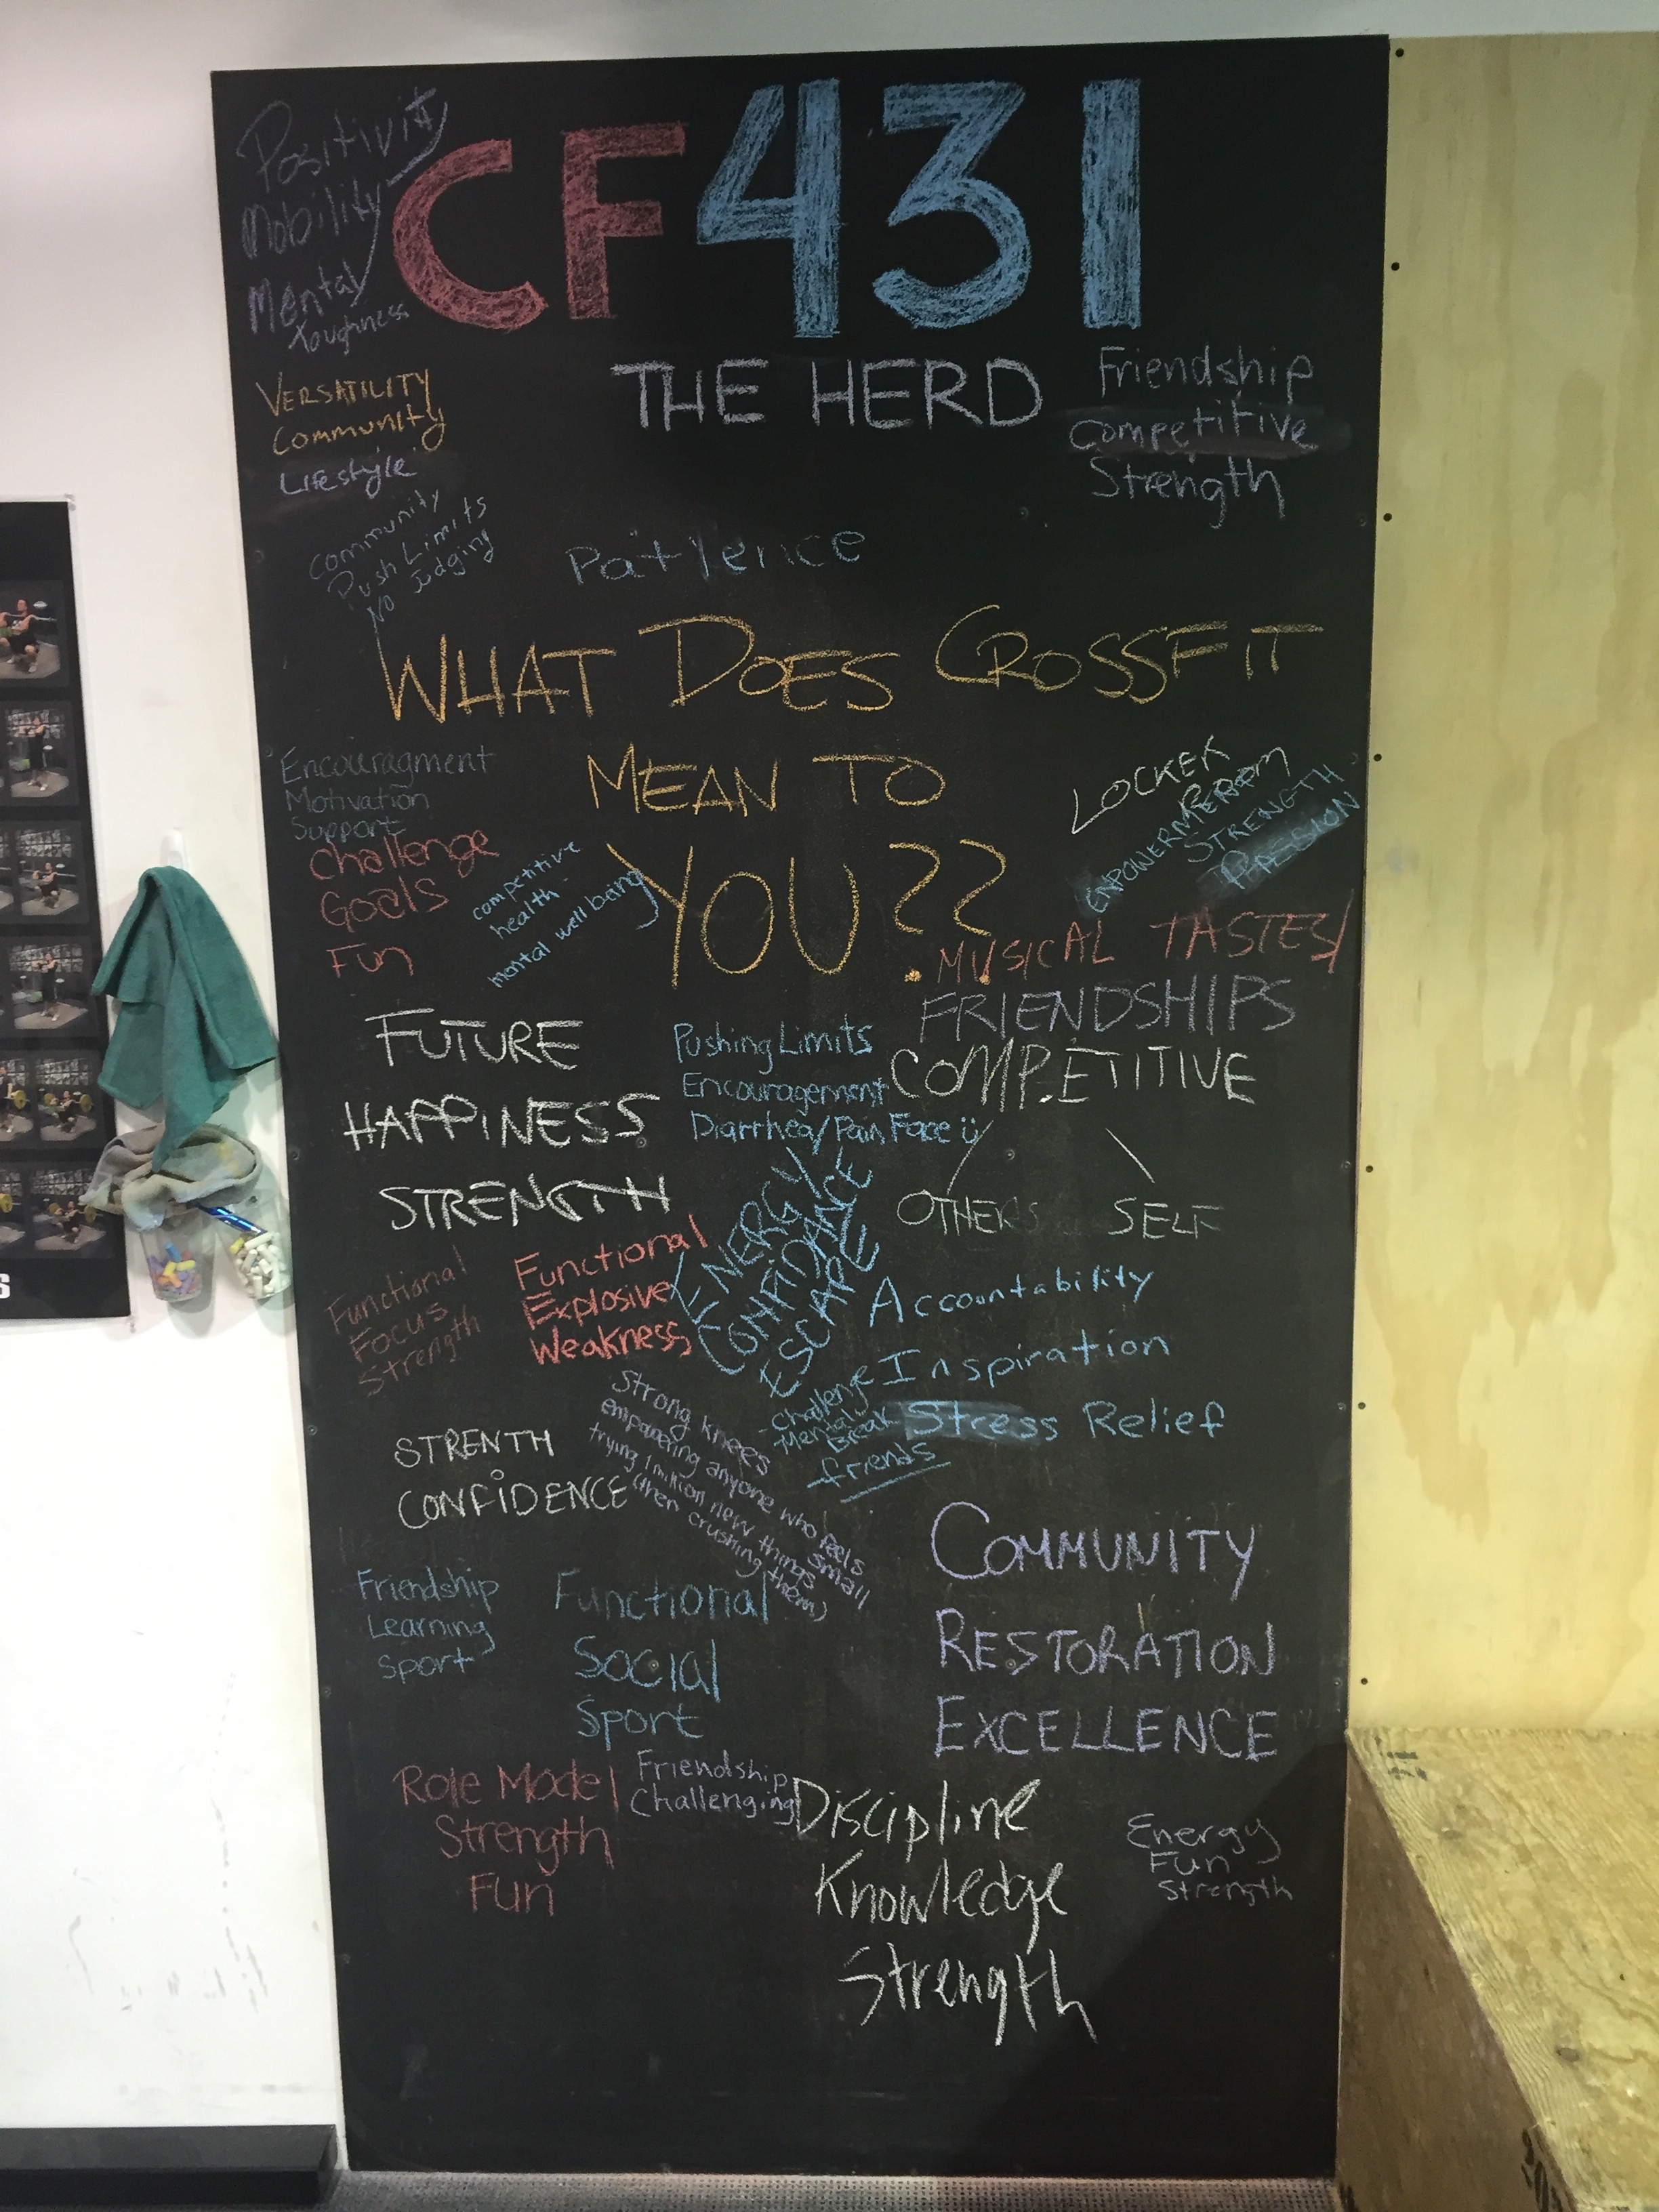 CF431
THE HERD
Positivity
Mobility
Mental
toughness
VERSATILITY
Community
Lifestyle
Friendship
Competitive
Strength
Community
Push Limits
No Judging
Patience
WHAT DOES CROSSFIT
MEAN TO
YOU??
Encouragment
Motivation
Support
Challenge
Goals
Fun
competitive
health
mental well being
LOCKER
EMPOWERMENT
STRENGTH
PASSION
MUSICAL TASTES!
FRIENDSHIPS
COMPETITIVE
OTHERS SELF
FUTURE
HAPPINESS
STRENGTH
Pushing Limits
Encouragement
Diarrhea/Pain Face ü
ENERGY
CONFIDANCE
ESCAPE
Functional
Focus
Strength
Functional
Explosive
Weakness
Accountability
Inspiration
Stress Relief
Challenge
Mental
Break
friends
Strong knees
empowering anyone who feels small
trying 1 million new things
(then crushing them)
STRENTH
CONFIDENCE
Friendship
Learning
Sport
Functional
Social
Sport
COMMUNITY
RESTORATION
EXCELLENCE
Role Model
Strength
Fun
Friendship
Challenging
Discipline
Knowledge
Strength
Energy
Fun
Strength